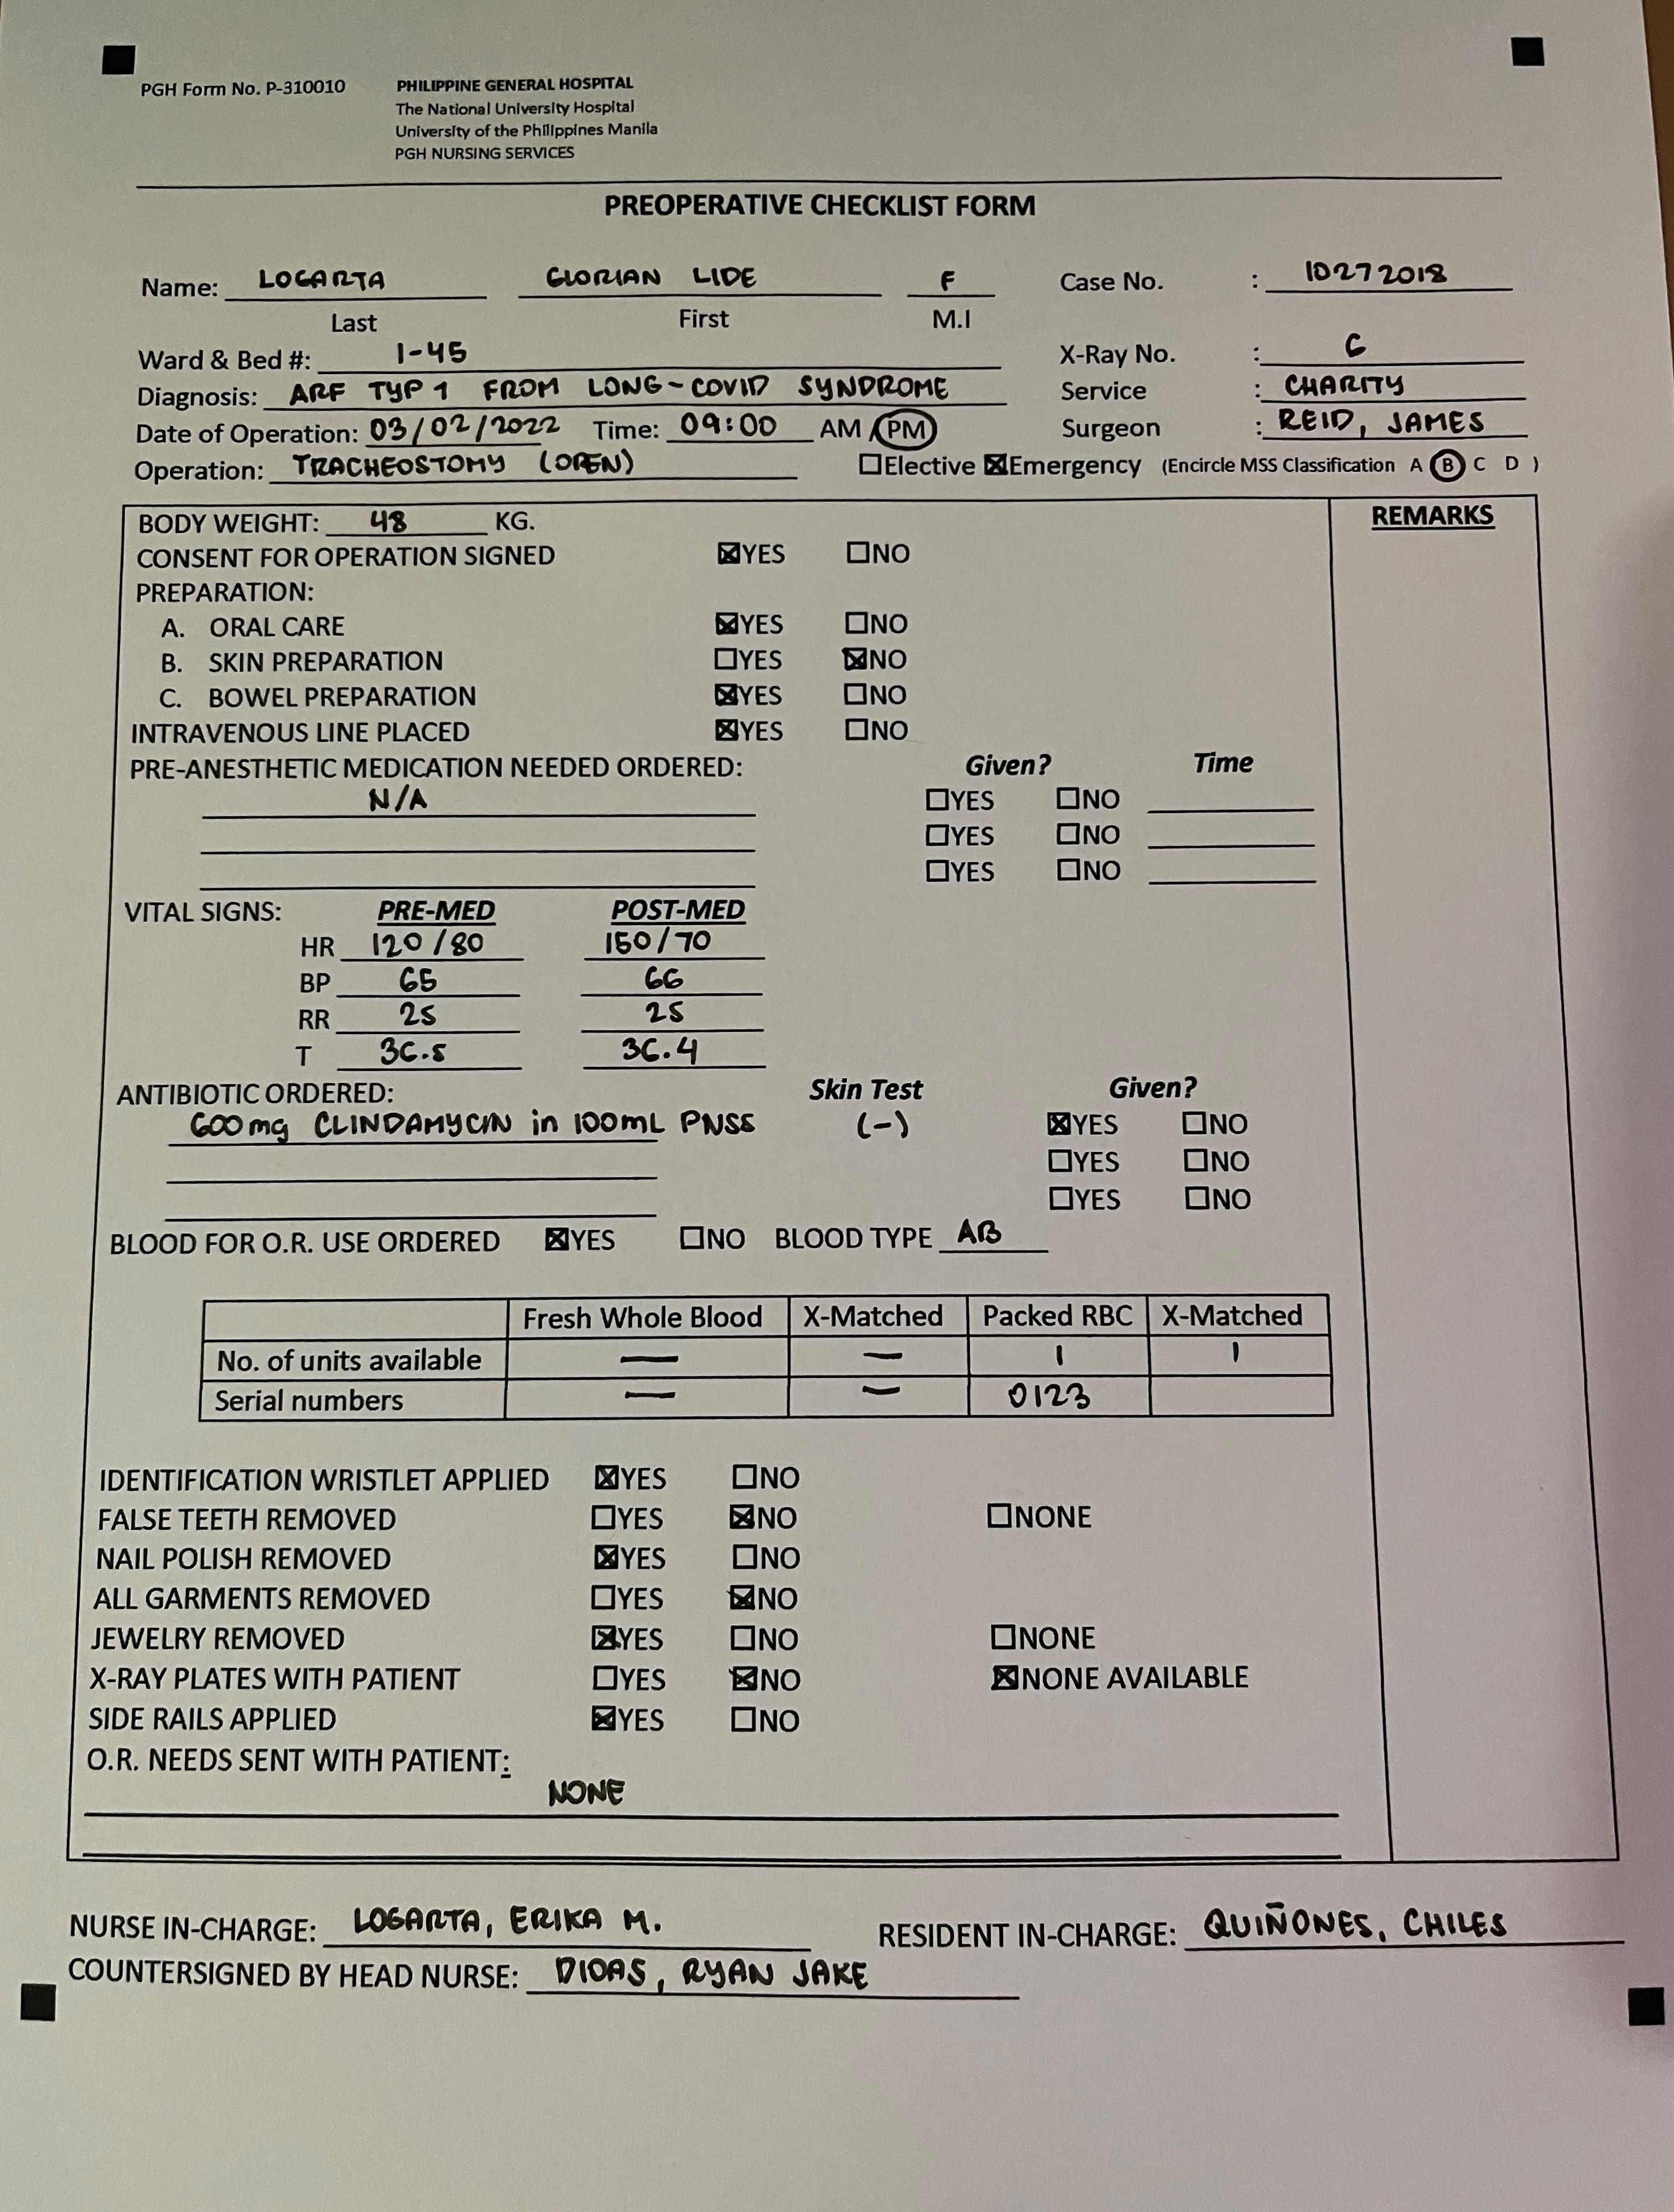 PGH Form No. P-310010 PHILIPPINE GENERAL HOSPITAL
The National University Hospital
University of the Philippines Manila
PGH NURSING SERVICES
PREOPERATIVE CHECKLIST FORM
Name: LOGARTA GLORIAN LIDE F Case No. : 10272018
Last First M.I
Ward & Bed #: 1-45 X-Ray No. : 6
Diagnosis: ARF TYP 1 FROM LONG-COVID SYNDROME Service : CHARITY
Date of Operation: 03/02/2022 Time: 09:00 AM / PM Surgeon : REID, JAMES
Operation: TRACHEOSTOMY (OPEN) ☐Elective ☒Emergency (Encircle MSS Classification A B C D )
BODY WEIGHT: 48 KG. REMARKS
CONSENT FOR OPERATION SIGNED ☒YES ☐NO
PREPARATION:
A. ORAL CARE ☒YES ☐NO
B. SKIN PREPARATION ☐YES ☒NO
C. BOWEL PREPARATION ☒YES ☐NO
INTRAVENOUS LINE PLACED ☒YES ☐NO
PRE-ANESTHETIC MEDICATION NEEDED ORDERED: Given? Time
N/A ☐YES ☐NO
☐YES ☐NO
☐YES ☐NO
VITAL SIGNS: PRE-MED POST-MED
HR 120/80 150/70
BP 65 66
RR 25 25
T 36.5 36.4
ANTIBIOTIC ORDERED: Skin Test Given?
600mg CLINDAMYCIN in 100mL PNSS (-) ☒YES ☐NO
☐YES ☐NO
☐YES ☐NO
BLOOD FOR O.R. USE ORDERED ☒YES ☐NO BLOOD TYPE AB
Fresh Whole Blood X-Matched Packed RBC X-Matched
No. of units available — — 1 1
Serial numbers — — 0123
IDENTIFICATION WRISTLET APPLIED ☒YES ☐NO
FALSE TEETH REMOVED ☐YES ☒NO ☐NONE
NAIL POLISH REMOVED ☒YES ☐NO
ALL GARMENTS REMOVED ☐YES ☒NO
JEWELRY REMOVED ☒YES ☐NO ☐NONE
X-RAY PLATES WITH PATIENT ☐YES ☒NO ☒NONE AVAILABLE
SIDE RAILS APPLIED ☒YES ☐NO
O.R. NEEDS SENT WITH PATIENT:
NONE
NURSE IN-CHARGE: LOGARTA, ERIKA M. RESIDENT IN-CHARGE: QUIÑONES, CHILES
COUNTERSIGNED BY HEAD NURSE: DIOAS, RYAN JAKE